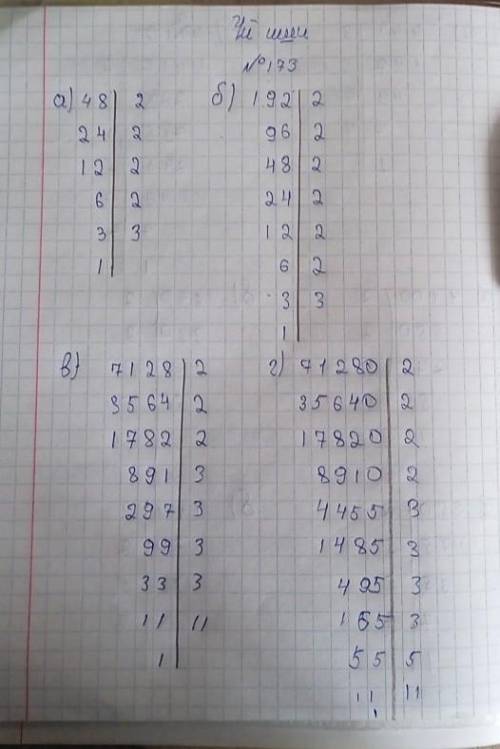 Үй иши
№173
а) 48 | 2
24 | 2
12 | 2
6 | 2
3 | 3
1
б) 192 | 2
96 | 2
48 | 2
24 | 2
12 | 2
6 | 2
3 | 3
1
в) 7128 | 2
3564 | 2
1782 | 2
891 | 3
297 | 3
99 | 3
33 | 3
11 | 11
1
г) 71280 | 2
35640 | 2
17820 | 2
8910 | 2
4455 | 3
1485 | 3
495 | 3
165 | 3
55 | 5
11 | 11
1